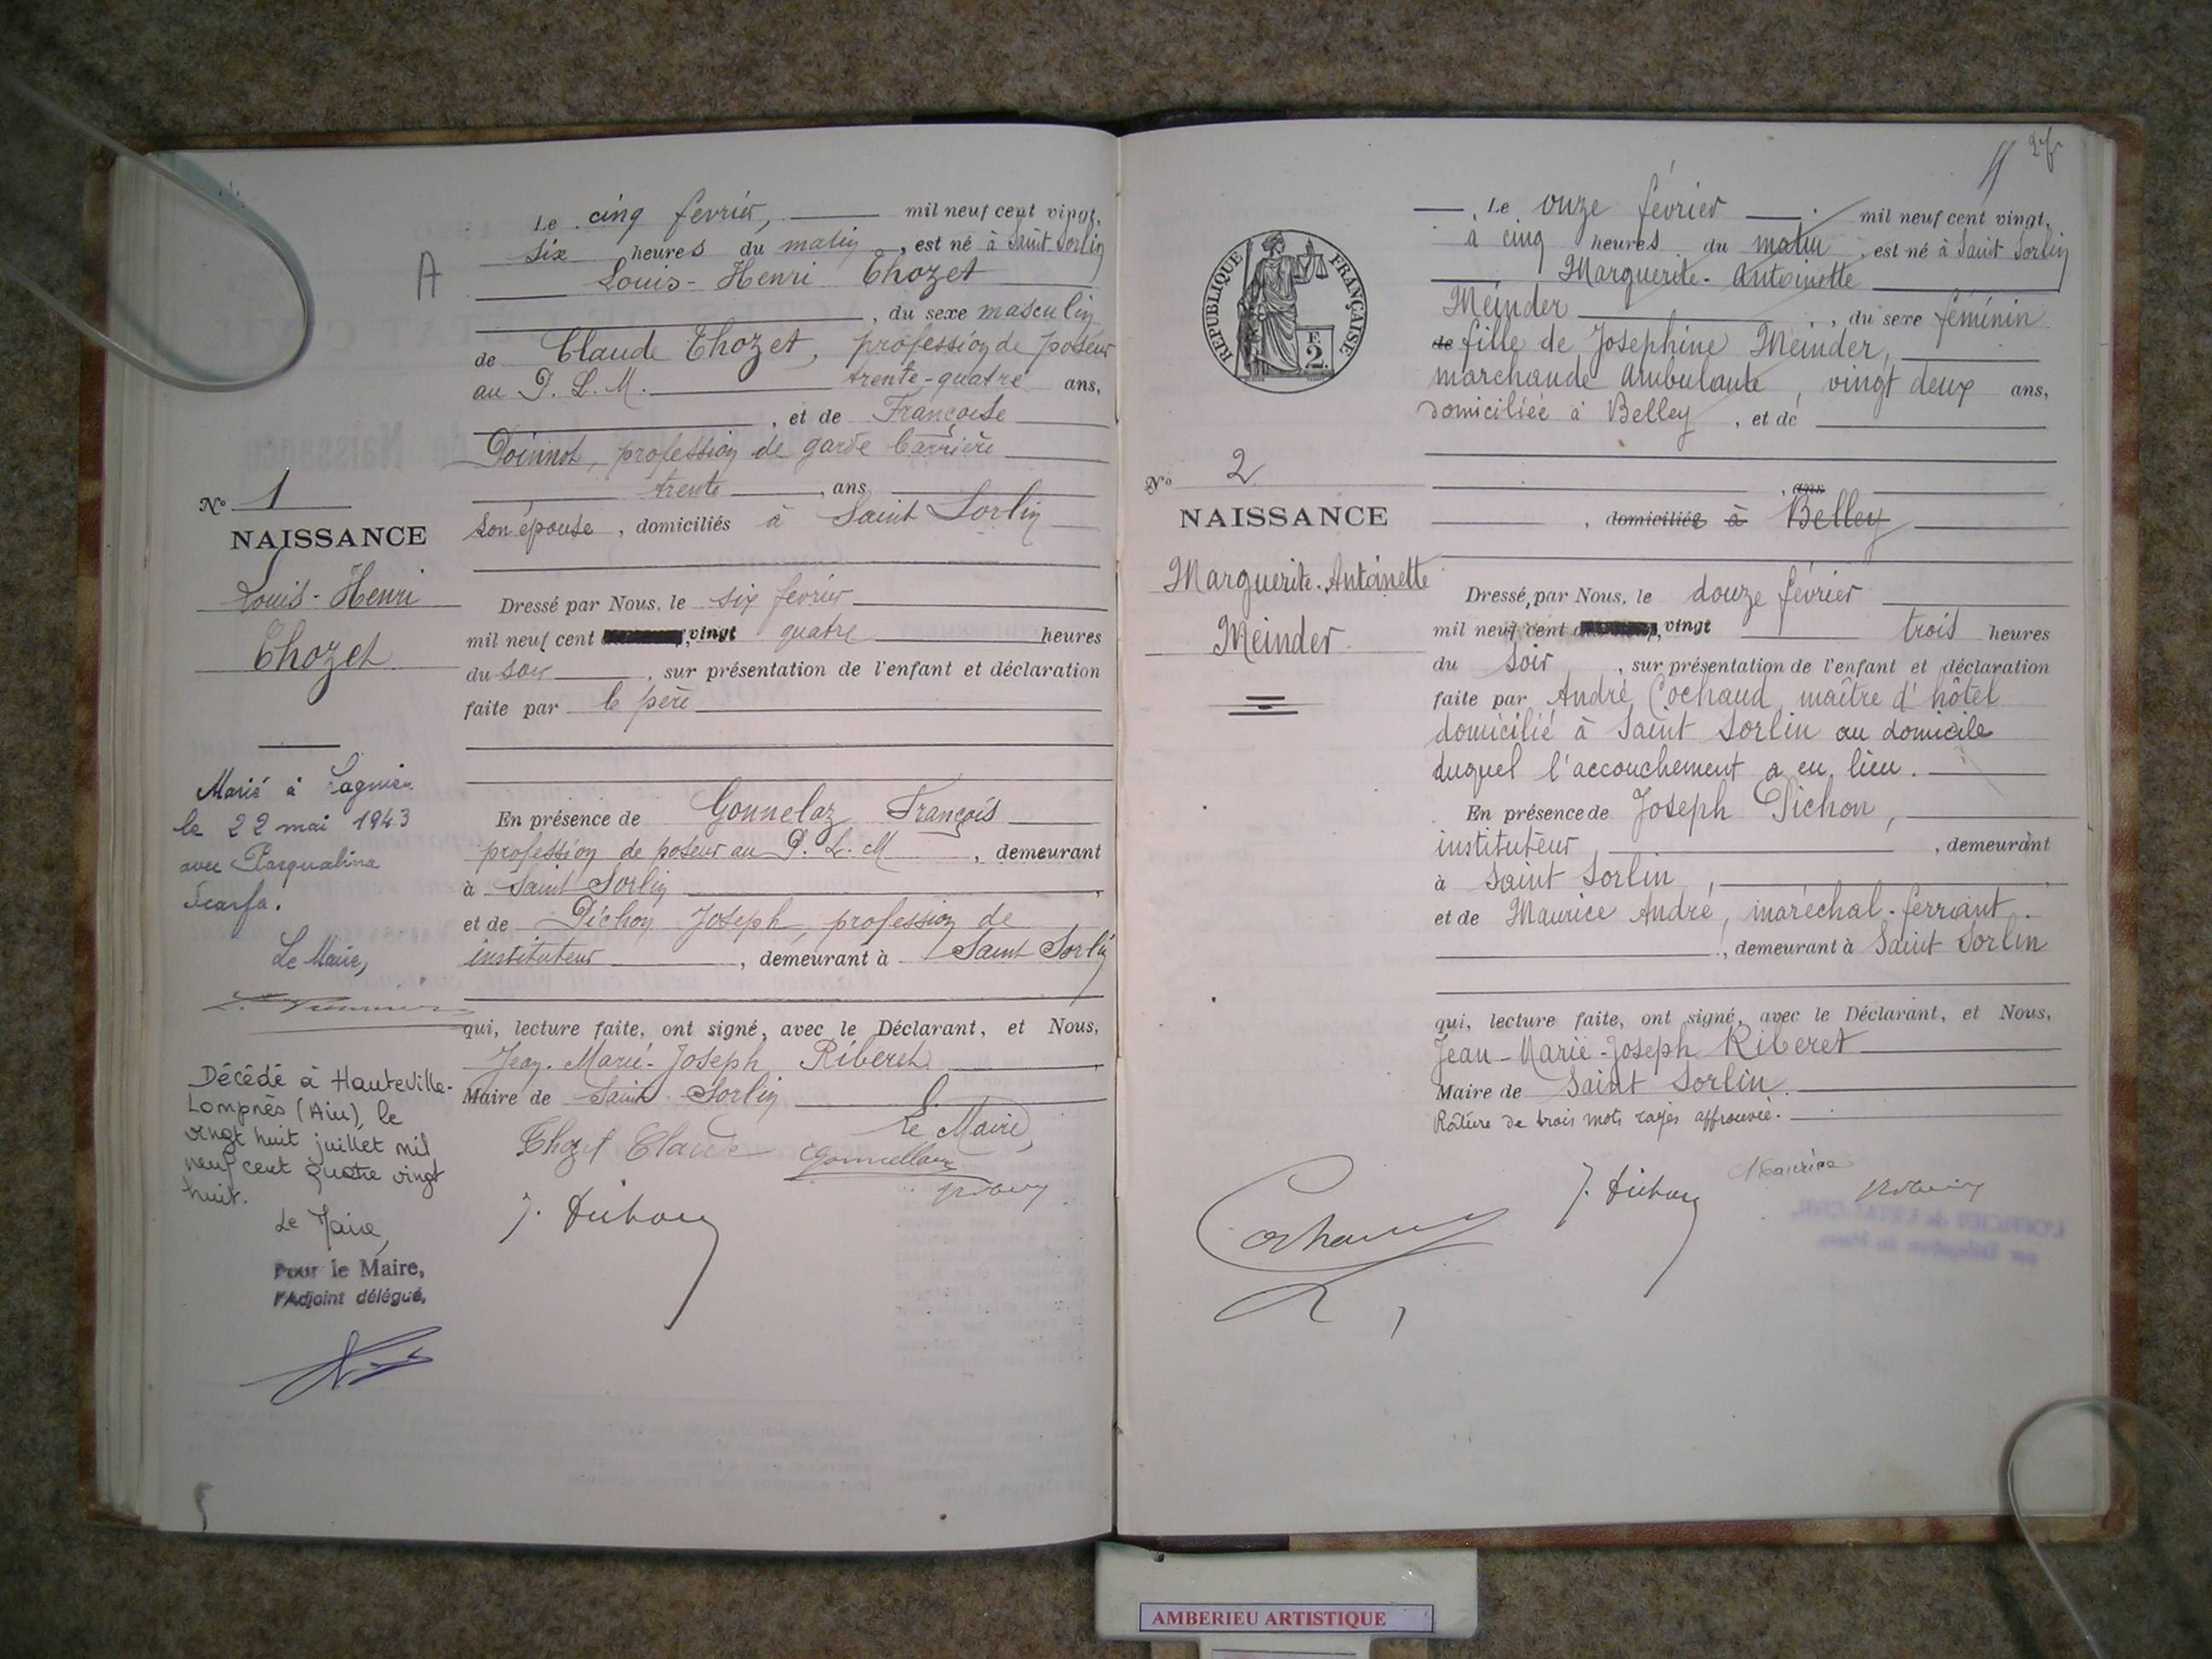 A
Le cinq fevrier, mil neuf cent vingt,
six heures du matin, est né à Saint Sorlin
Louis-Henri Thozet
, du sexe masculin
de Claude Thozet, profession de poseur
au P. L. M. trente-quatre ans,
, et de Françoise
Poinnot, profession de garde barrière
trente, ans
son épouse, domiciliés à Saint Sorlin
Dressé par Nous, le six fevrier
mil neuf cent vingt quatre heures
du soir, sur présentation de l'enfant et déclaration
faite par le père
En présence de Gonnelaz François
profession de poseur au P. L. M, demeurant
à Saint Sorlin
et de Pichon Joseph, profession de
instituteur, demeurant à Saint Sorlin
qui, lecture faite, ont signé, avec le Déclarant, et Nous,
Jean-Marie-Joseph Riberet
Maire de Saint Sorlin
Le Maire,
Thozet Claude
J. Pichon
No 1
NAISSANCE
Louis-Henri
Thozet
Marié à Lagnieu
le 22 mai 1943
avec Pasqualina
Scarfa.
Le Maire,
Décédé à Hauteville-
Lompnès (Ain), le
vingt huit juillet mil
neuf cent quatre vingt
huit.
Le Maire,
Pour le Maire,
l'Adjoint délégué,
REPUBLIQUE FRANÇAISE
F.
2.
No 2
NAISSANCE
Marguerite-Antoinette
Meinder
Le onze février mil neuf cent vingt,
à cinq heures du matin, est né à Saint Sorlin
Marguerite-Antoinette
Meinder, du sexe féminin
de fille de Josephine Meinder,
marchande ambulante vingt deux ans,
domiciliée à Belley, et de
, ans
, domiciliés à Belley
Dressé par Nous, le douze février
mil neuf cent vingt trois heures
du soir, sur présentation de l'enfant et déclaration
faite par André Cochaud maître d'hôtel
domicilié à Saint Sorlin au domicile
duquel l'accouchement a eu lieu.
En présence de Joseph Pichon,
instituteur, demeurant
à Saint Sorlin,
et de Maurice André, maréchal-ferrant.
, demeurant à Saint Sorlin
qui, lecture faite, ont signé, avec le Déclarant, et Nous,
Jean-Marie-Joseph Riberet
Maire de Saint Sorlin.
Rature de trois mots rayés approuvée.
J. Pichon
Maurice
AMBERIEU ARTISTIQUE